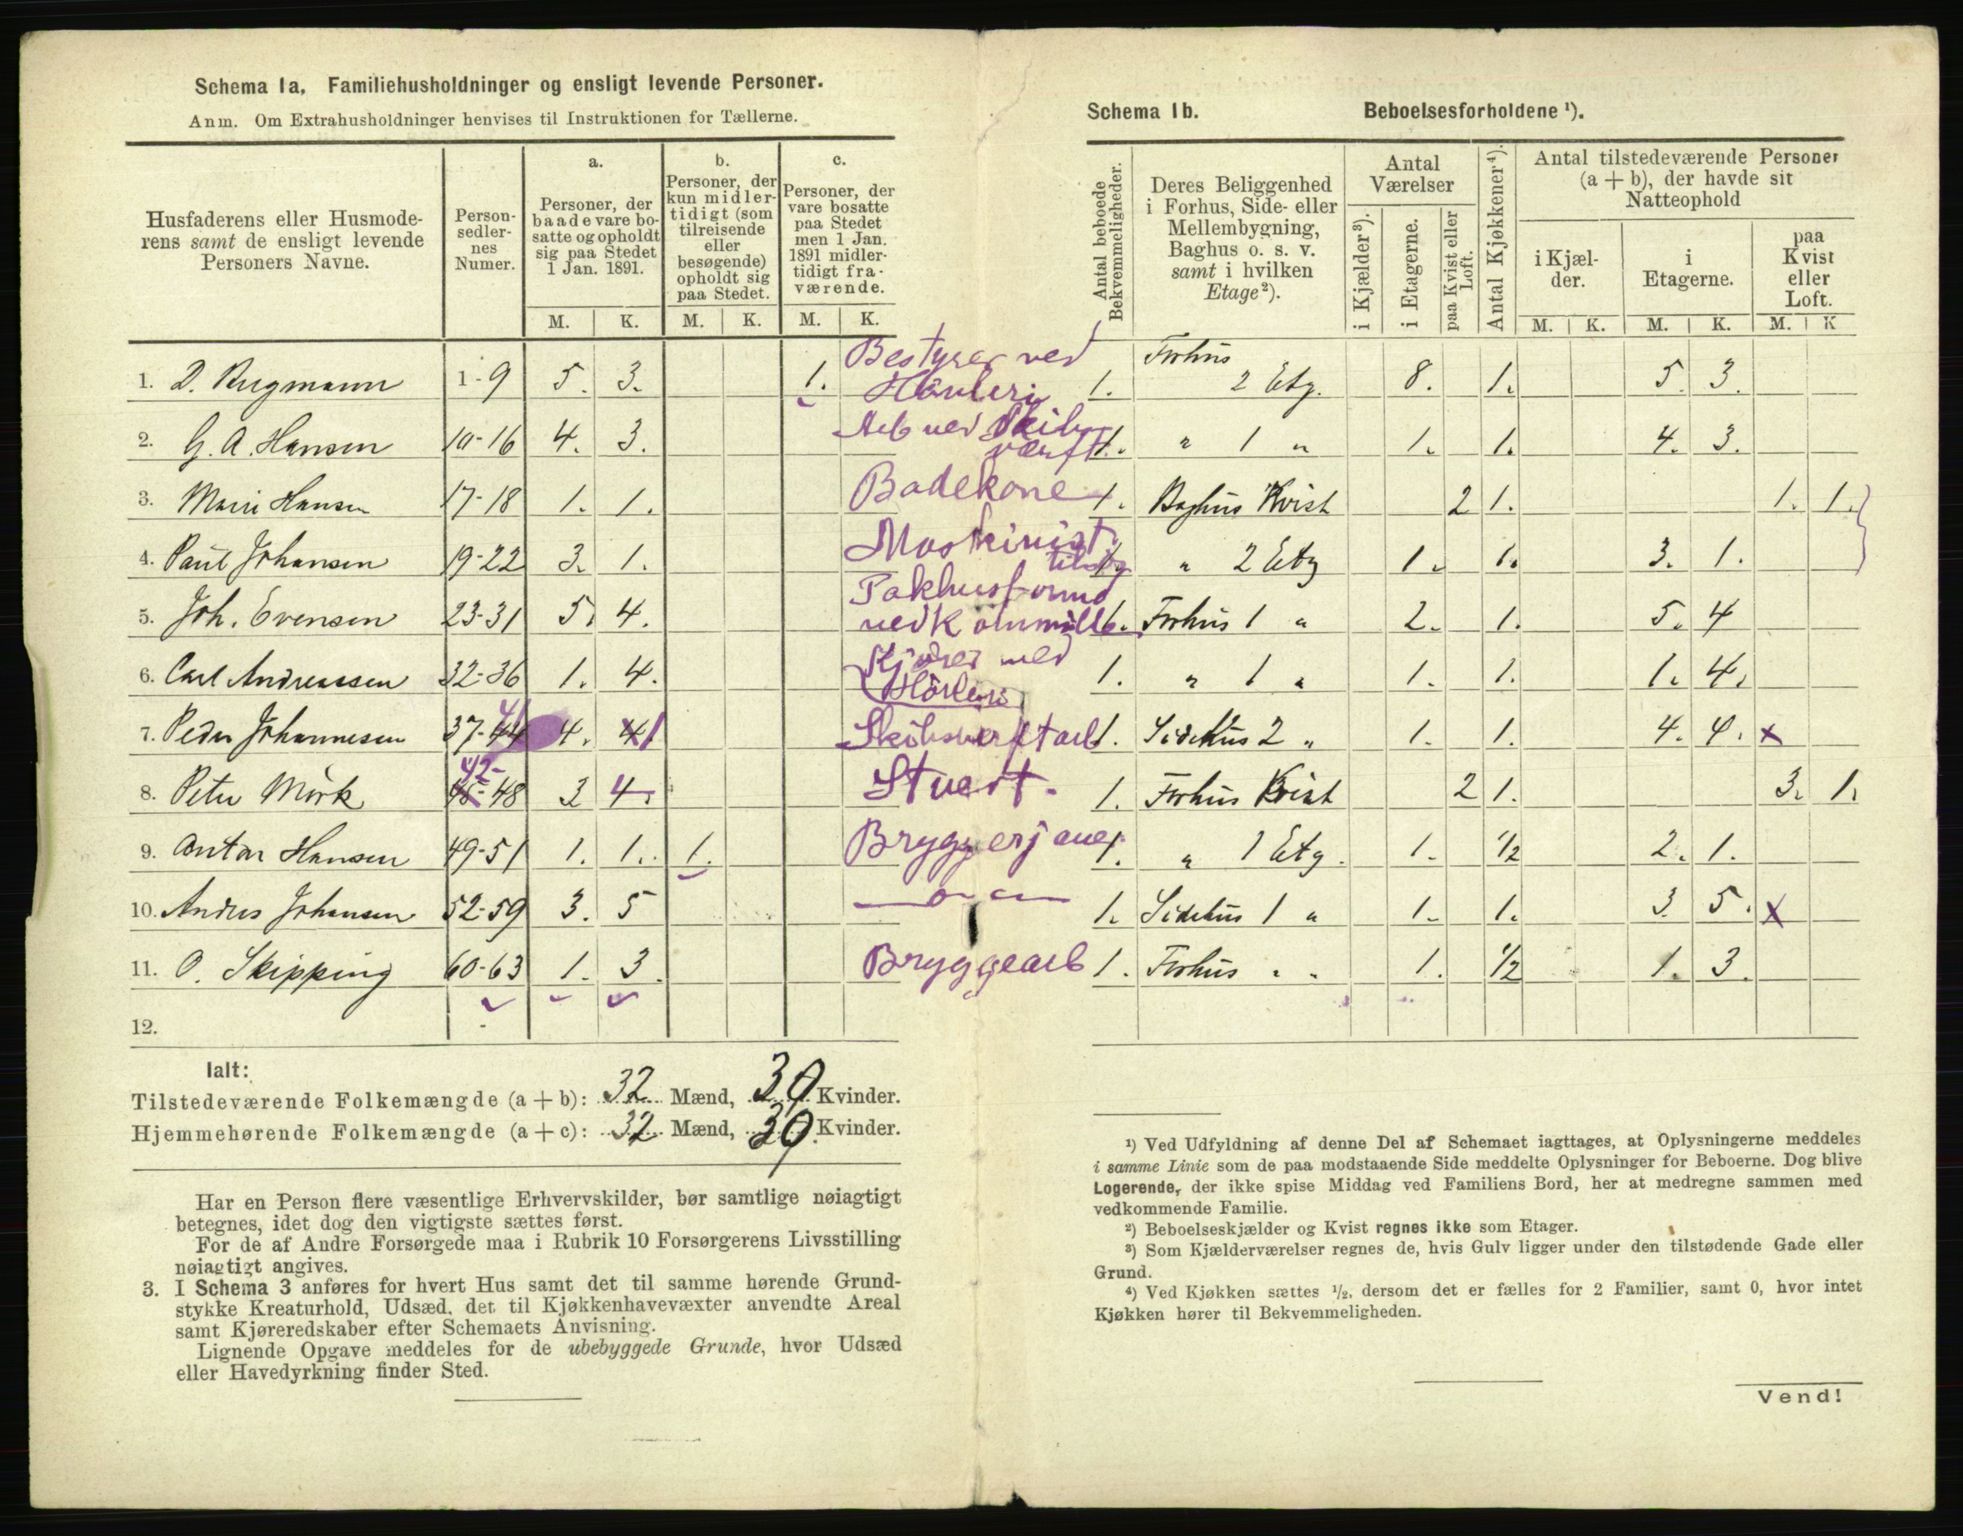 Schema 1a. Familiehusholdninger og ensligt levende Personer.
Anm. Om Extrahusholdninger henvises til Instruktionen for Tællerne.
Husfaderens eller Husmoderens samt de ensligt levende Personers Navne.
Personsedlernes Numer.
a. Personer, der baade vare bosatte og opholdt sig paa Stedet 1 Jan. 1891.
b. Personer, der kun midlertidigt (som tilreisende eller besøgende) opholdt sig paa Stedet.
c. Personer, der vare bosatte paa Stedet men 1 Jan. 1891 midlertidigt fraværende.
M. K. M. K. M. K.
1. D. Rugmann 1-9 5. 3. 1. Bestyrer ved Høvleri
2. G. A. Hansen 10-16 4. 3. Arb ved Skibsværft
3. Marie Hansen 17-18 1. 1. Badekone
4. Paul Johansen 19-22 3. 1. Maskinist
5. Joh. Evensen 23-31 5. 4. Pakhusformd ved Kornmølle
6. Carl Andreassen 32-36 1. 4. Kjører ved Høvleri
7. Peder Johannesen 37-44 41 4. 4. 1 Skibsverftarb
8. Peter Mörk 45-48 42- 3 4. Stuert.
9. Anton Hansen 49-51 1. 1. 1. Bryggerj
10. Andres Johansen 52-59 3. 5 —o—
11. O. Skipping 60-63 1. 3. Bryggearb
12.
Ialt:
Tilstedeværende Folkemængde (a + b): 32 Mænd, 30 Kvinder.
Hjemmehørende Folkemængde (a + c): 32 Mænd, 30 Kvinder.
Har en Person flere væsentlige Erhvervskilder, bør samtlige nøiagtigt
betegnes, idet dog den vigtigste sættes først.
For de af Andre Forsørgede maa i Rubrik 10 Forsørgerens Livsstilling
nøiagtigt angives.
3. I Schema 3 anføres for hvert Hus samt det til samme hørende Grund-
stykke Kreaturhold, Udsæd, det til Kjøkkenhavevæxter anvendte Areal
samt Kjøreredskaber efter Schemaets Anvisning.
Lignende Opgave meddeles for de ubebyggede Grunde, hvor Udsæd
eller Havedyrkning finder Sted.
Schema 1b. Beboelsesforholdene ¹).
Antal beboede Bekvemmeligheder.
Deres Beliggenhed i Forhus, Side- eller Mellembygning, Baghus o. s. v. samt i hvilken Etage ²).
Antal Værelser
i Kjælder ³).
i Etagerne.
paa Kvist eller Loft.
Antal Kjøkkener ⁴).
Antal tilstedeværende Personer (a + b), der havde sit Natteophold
i Kjælder.
i Etagerne.
paa Kvist eller Loft.
M. K. M. K. M. K
1. Forhus 2 Etg. 8. 1. 5. 3.
1. " 1 " 1. 1. 4. 3.
1. Baghus Kvist 2 1. 1. 1.
1. " 2 Etg 1. 1. 3. 1.
1. Forhus 1 " 2. 1. 5. 4
1. " 1 " 1. 1. 1. 4.
1. Sidehus 2 " 1. 1. 4. 4. x
1. Forhus Kvist 2 1. 3. 1.
1. " 1 Etg. 1. 1/2 2. 1.
1. Sidehus 1 " 1. 1. 3. 5. x
1. Forhus " " 1. 1/2 1. 3.
¹) Ved Udfyldning af denne Del af Schemaet iagttages, at Oplysningerne meddeles
i samme Linie som de paa modstaaende Side meddelte Oplysninger for Beboerne. Dog blive
Logerende, der ikke spise Middag ved Familiens Bord, her at medregne sammen med
vedkommende Familie.
²) Beboelseskjælder og Kvist regnes ikke som Etager.
³) Som Kjælderværelser regnes de, hvis Gulv ligger under den tilstødende Gade eller
Grund.
⁴) Ved Kjøkken sættes ½, dersom det er fælles for 2 Familier, samt 0, hvor intet
Kjøkken hører til Bekvemmeligheden.
Vend!